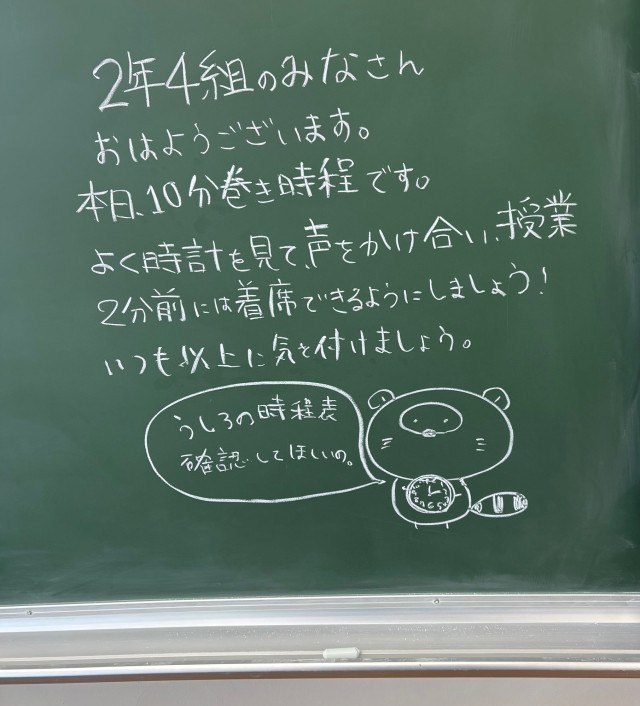 2年4組のみなさん
おはようございます。
本日、10分巻き時程です。
よく時計を見て、声をかけ合い、授業
2分前には着席できるようにしましょう!
いつも以上に気を付けましょう。
うしろの時程表
確認してほしいの。